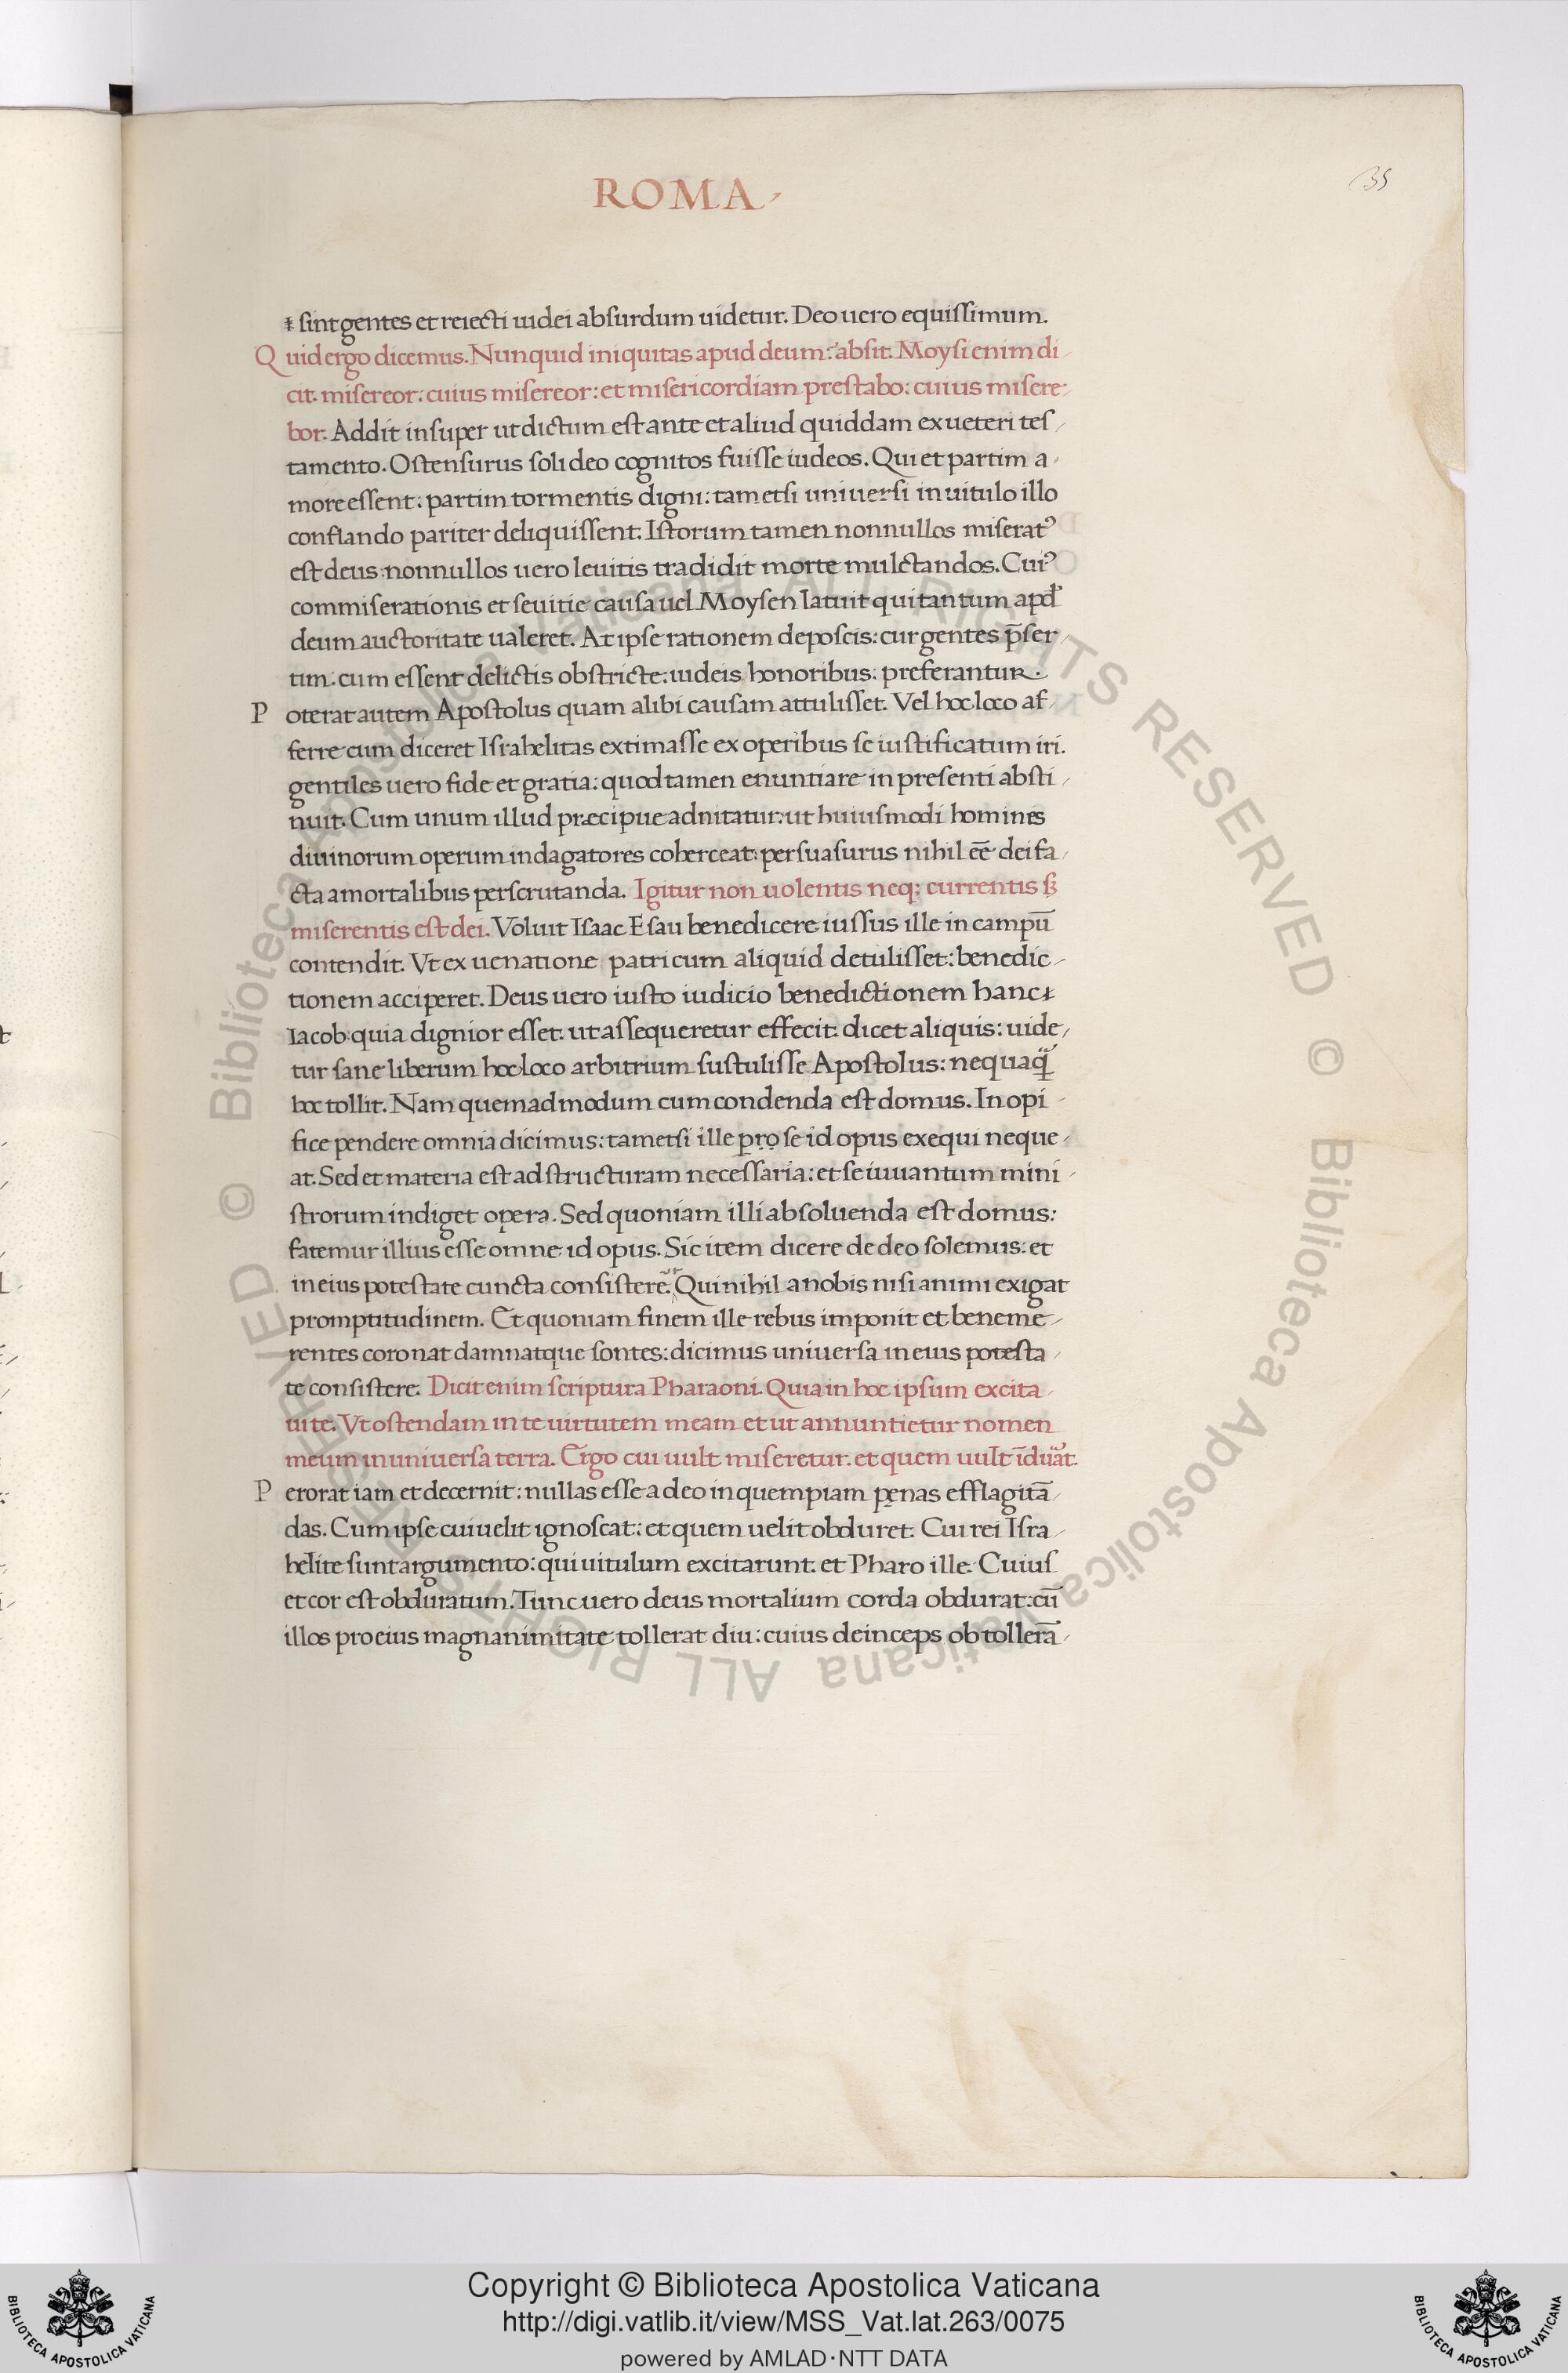 ROMA
35
sint gentes et reiecti iudei absurdum uidetur. Deo uero equissimum.
Quid ergo dicemus. Nunquid iniquitas apud deum: absit. Moysi enim di
cit. misereor: cuius misereor: et misericordiam prestabo: cuius misere
bor. Addit insuper ut dictum est ante et aliud quiddam ex ueteri tes
tamento. Ostensurus soli deo cognitos fuisse iudeos. Qui et partim a
more essent: partim tormentis digni: tametsi uniuersi in uitulo illo
conflando pariter deliquissent. Istorum tamen nonnullos miseratꝰ
est deus: nonnullos uero leuitis tradidit morte mulctandos. Cuiꝰ
commiserationis et seuitie causa uel Moysen latuit qui tantum apd̉
deum auctoritate ualeret. At ipse rationem deposcis: cur gentes p̄ser
tim: cum essent delictis obstricte: iudeis honoribus: preferantur.
Poterat autem Apostolus quam alibi causam attulisset. Vel hoc loco af
ferre cum diceret Israhelitas extimasse ex operibus se iustificatum iri.
gentiles uero fide et gratia: quod tamen enuntiare in presenti absti
nuit. Cum unum illud præcipue adnitatur: ut huiusmodi homines
diuinorum operum indagatores coherceat: persuasurus nihil eē dei fa
cta a mortalibus perscrutanda. Igitur non uolentis neq; currentis sꝫ
miserentis est dei. Voluit Isaac Esau benedicere iussus ille in campū
contendit. Vt ex uenatione patri cum aliquid detulisset: benedic
tionem acciperet. Deus uero iusto iudicio benedictionem hanc
Iacob quia dignior esset. ut assequeretur effecit. dicet aliquis: uide
tur sane liberum hoc loco arbitrium sustulisse Apostolus: nequaꝙ̃
hoc tollit. Nam quemadmodum cum condenda est domus. In opi
fice pendere omnia dicimus: tametsi ille pro se id opus exequi neque
at. Sed et materia est ad structuram necessaria: et se iuuantum mini
strorum indiget opera. Sed quoniam illi absoluenda est domus:
fatemur illius esse omne id opus. Sic item dicere de deo solemus: et
in eius potestate cuncta consistere. Qui nihil a nobis nisi animi exigat
promptitudinem. Et quoniam finem ille rebus imponit et beneme
rentes coronat damnatque sontes: dicimus uniuersa in eius potesta
te consistere. Dicit enim scriptura Pharaoni. Quia in hoc ipsum excita
ui te. Vt ostendam in te uirtutem meam et ut annuntietur nomen
meum in uniuersa terra. Ergo cui uult miseretur. et quem uult īduᷓat.
Perorat iam et decernit: nullas esse a deo in quempiam pęnas efflagitā
das. Cum ipse cui uelit ignoscat: et quem uelit obduret. Cui rei Isra
helite sunt argumento: qui uitulum excitarunt. et Pharo ille. Cuius
et cor est obduratum. Tunc uero deus mortalium corda obdurat: cū
illos pro eius magnanimitate tollerat diu: cuius deinceps ob tollerā
© Biblioteca Apostolica Vaticana ALL RIGHTS RESERVED
© Biblioteca Apostolica Vaticana ALL RIGHTS RESERVED
Copyright © Biblioteca Apostolica Vaticana
http://digi.vatlib.it/view/MSS_Vat.lat.263/0075
powered by AMLAD·NTT DATA
BIBLIOTECA APOSTOLICA VATICANA
BIBLIOTECA APOSTOLICA VATICANA